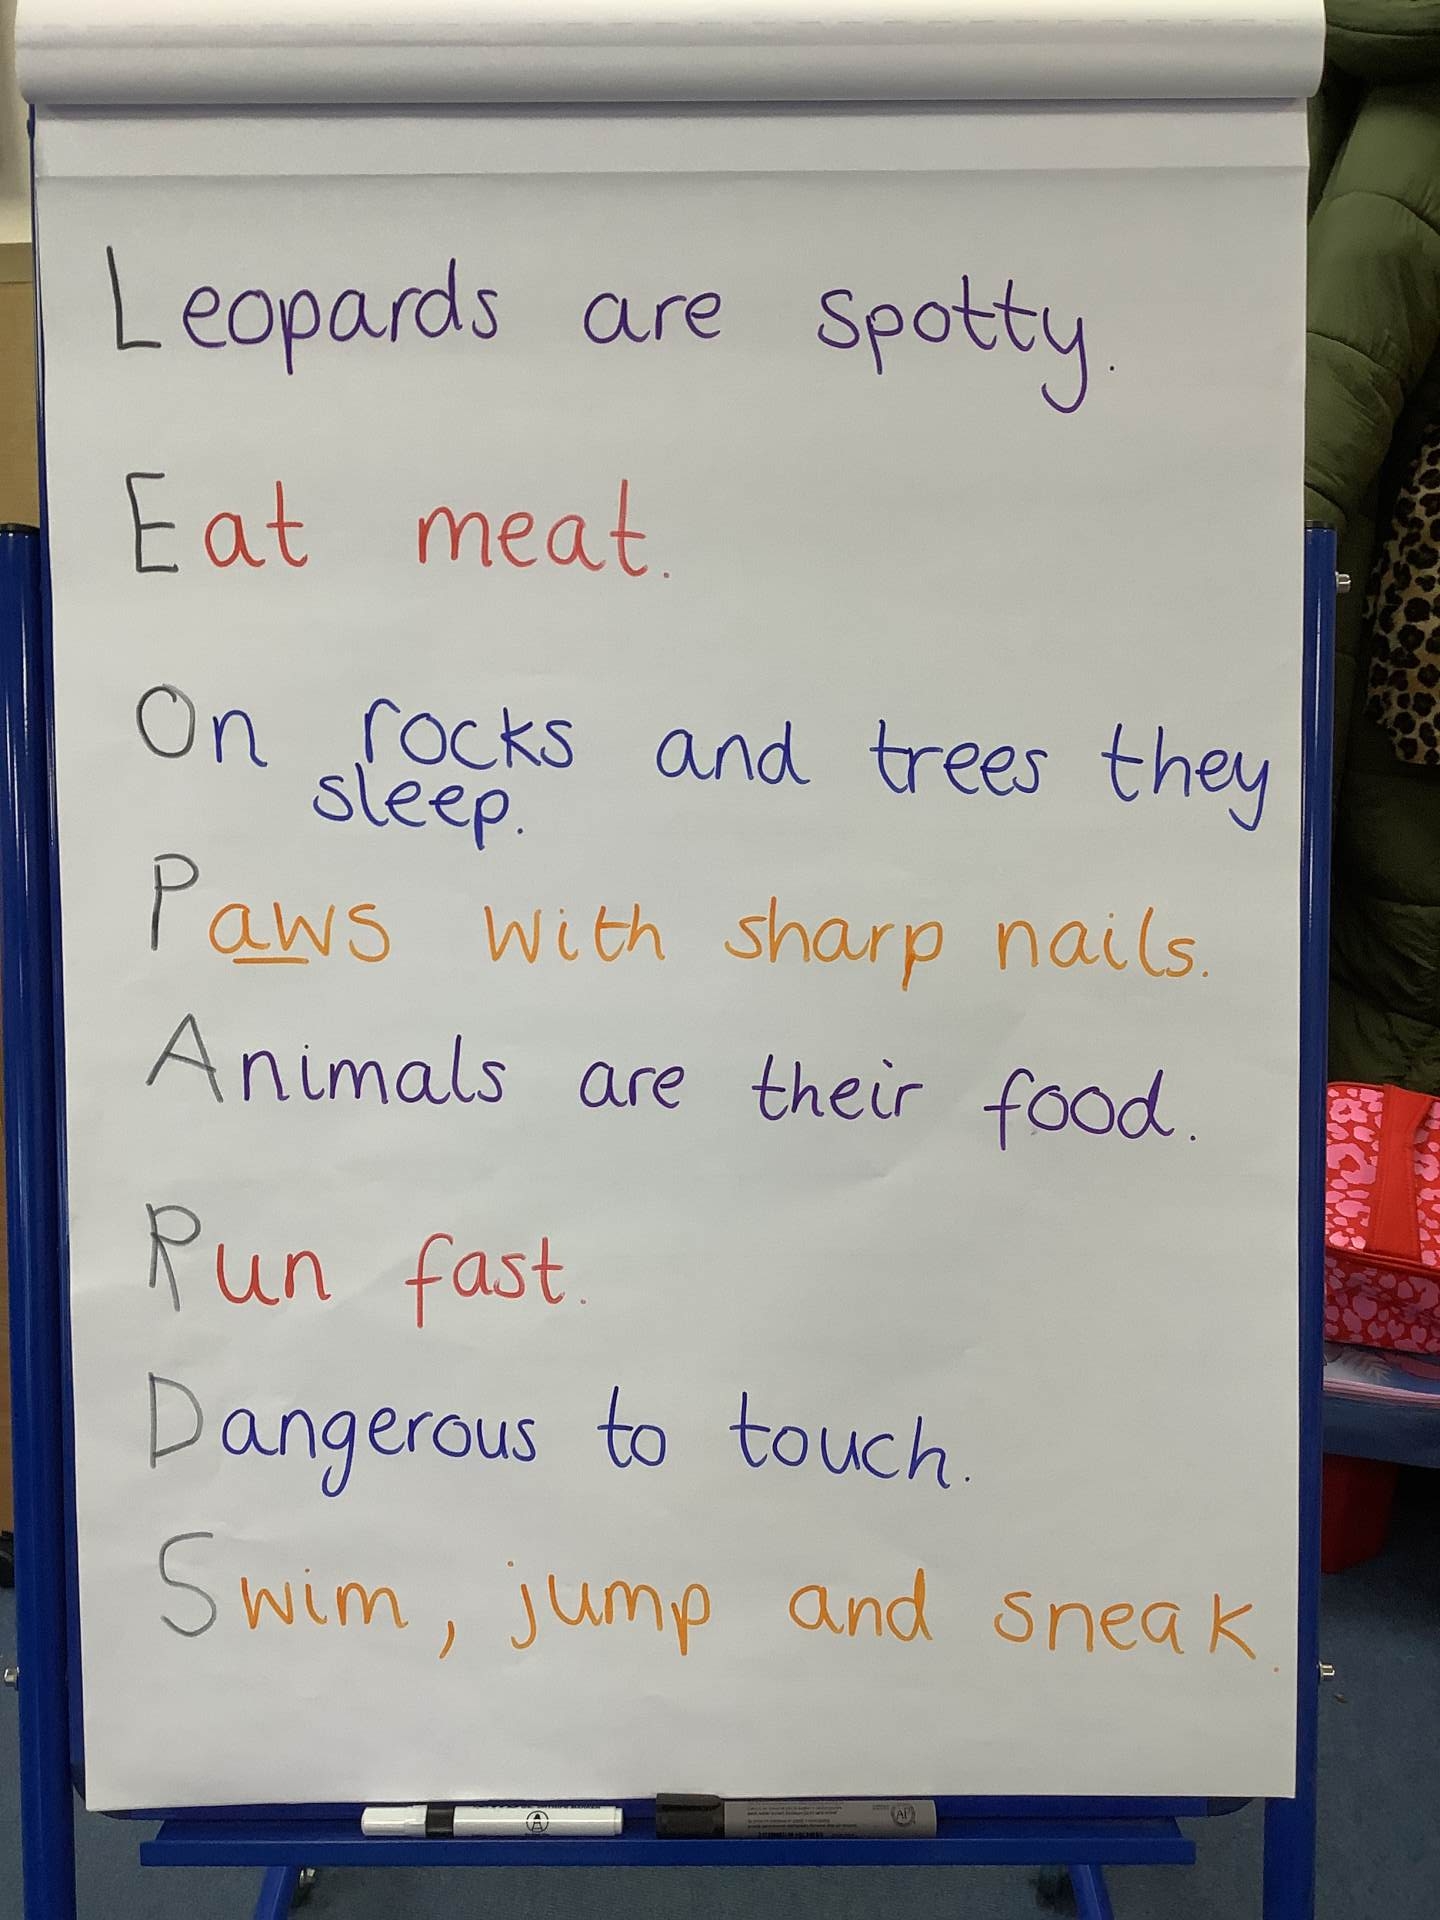 Leopards are spotty.
Eat meat.
On rocks and trees they
sleep.
Paws with sharp nails.
Animals are their food.
Run fast.
Dangerous to touch.
Swim, jump and sneak.